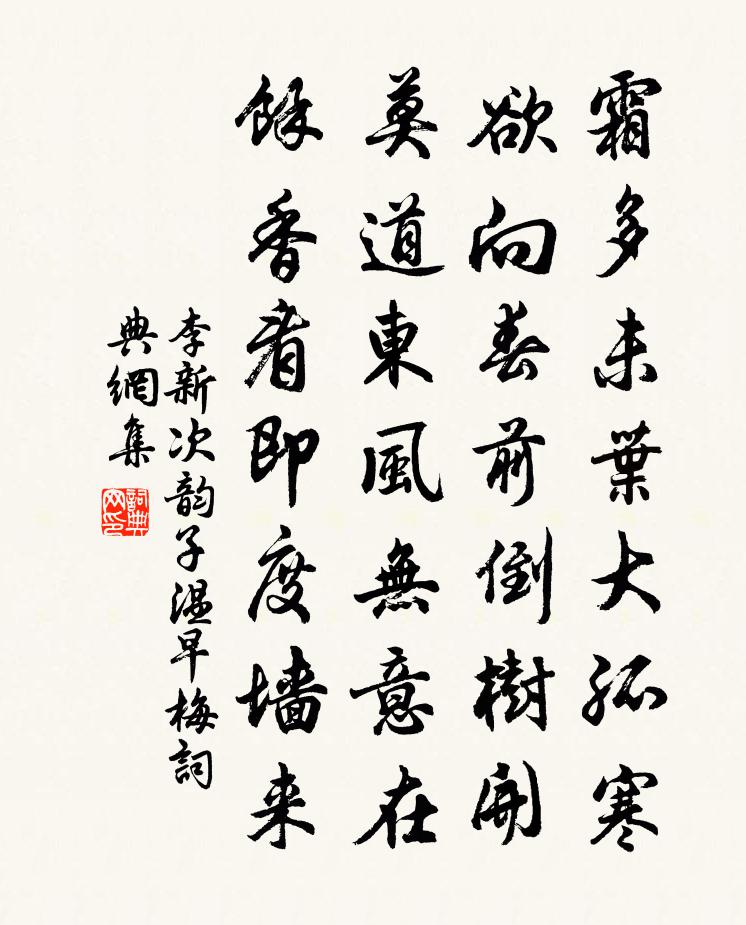 霜多未葉大孤寒
欲向春前倒樹開
莫道東風無意在
餘香看即度墻来
李新次韵子温早梅詞
典網集
詞典
网印